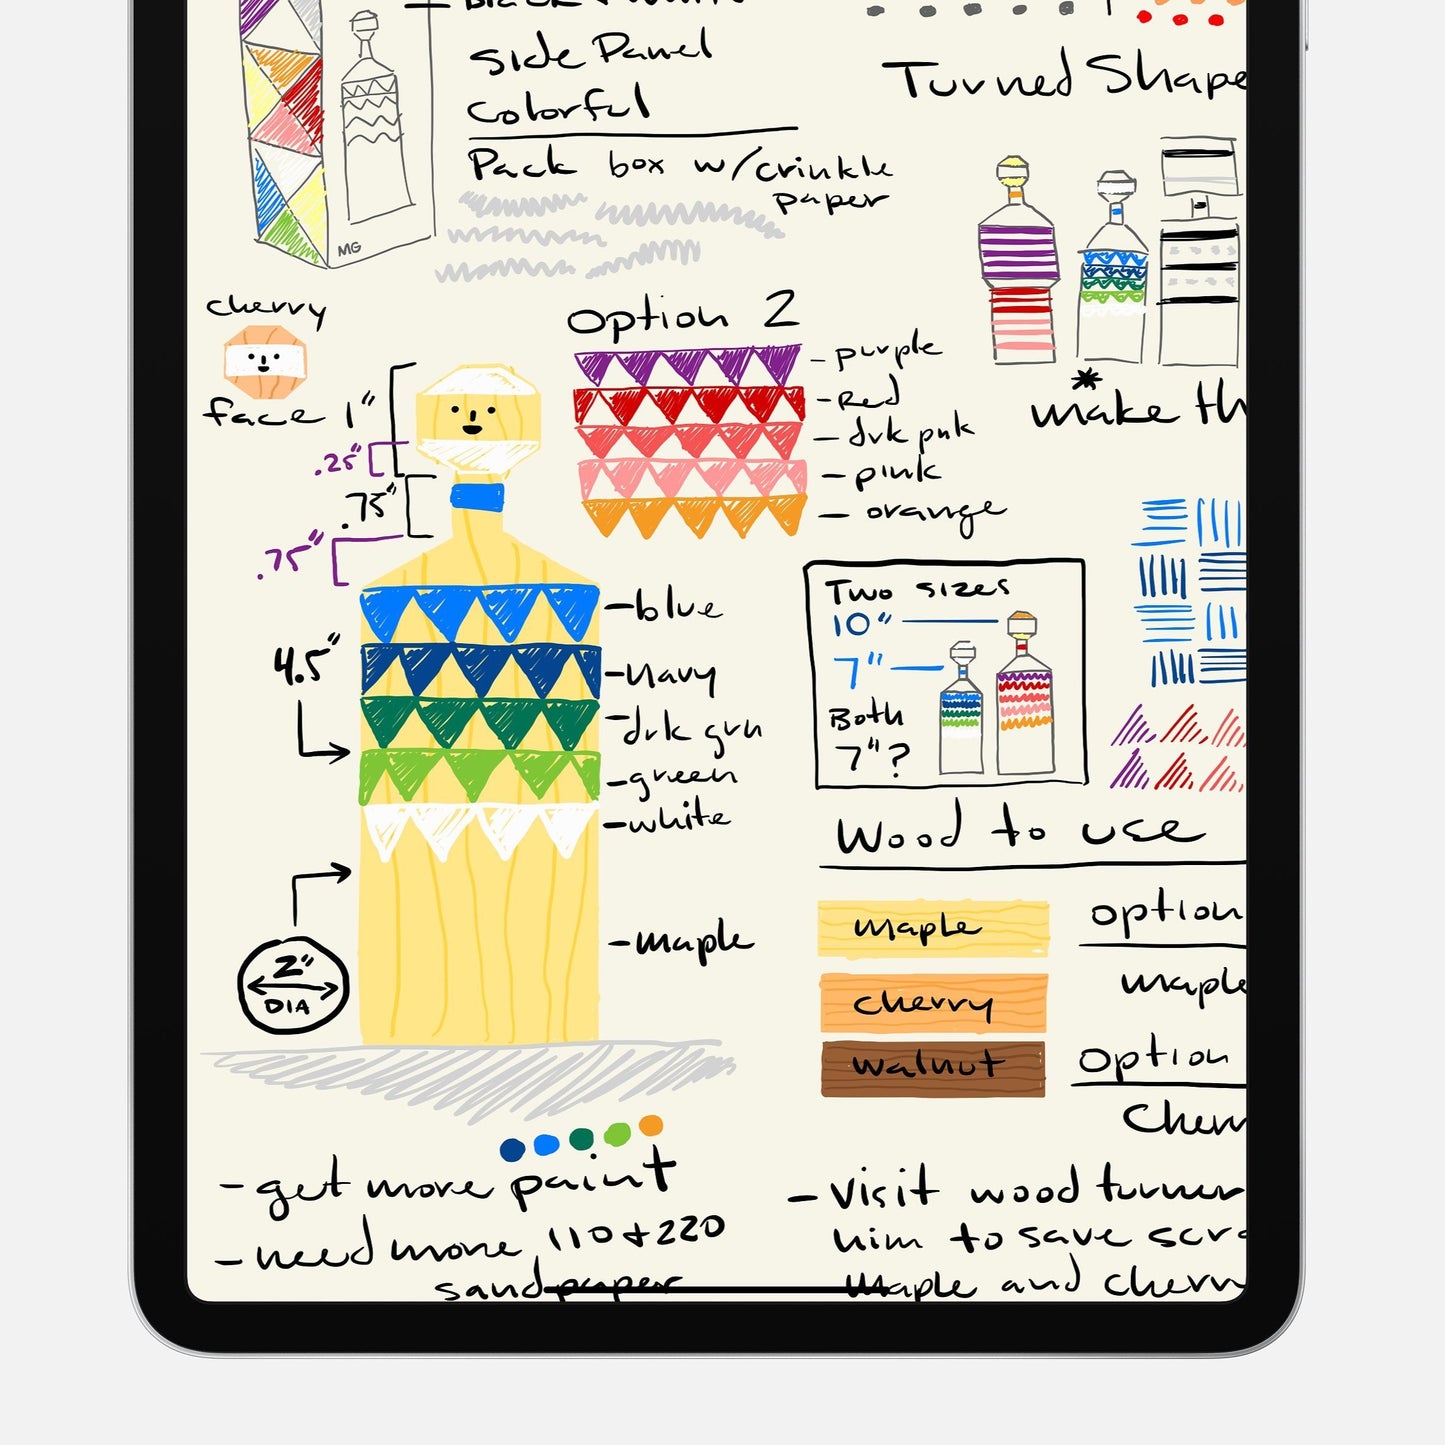 Side Panel
Colorful
Pack box w/crinkle
paper
MG
Turned Shape
cherry
face
1"
.25"
.75"
.75"
4.5"
2"
DIA
Option 2
- purple
- Red
- drk pnk
- pink
- orange
make th
- blue
- Navy
- drk grn
- green
- white
- maple
Two sizes
10"
7"
Both
7"?
Wood to use
maple
cherry
walnut
option
maple
Option
Cherr
- get more paint
- need more 110 + 220
sandpaper
- Visit wood turner
him to save scra
maple and cherr